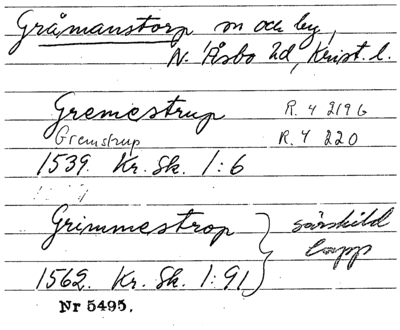 Gråmanstorp sn och by,
N. Åsbo hd, Krist. l.
Gremestrup R. 4 219 G
Gremstrup R. 4 220
1539. Kr. Sk. 1:6
Grimmestrop } särskild
lapp
1562. Kr. Sk. 1:91
Nr 5495.